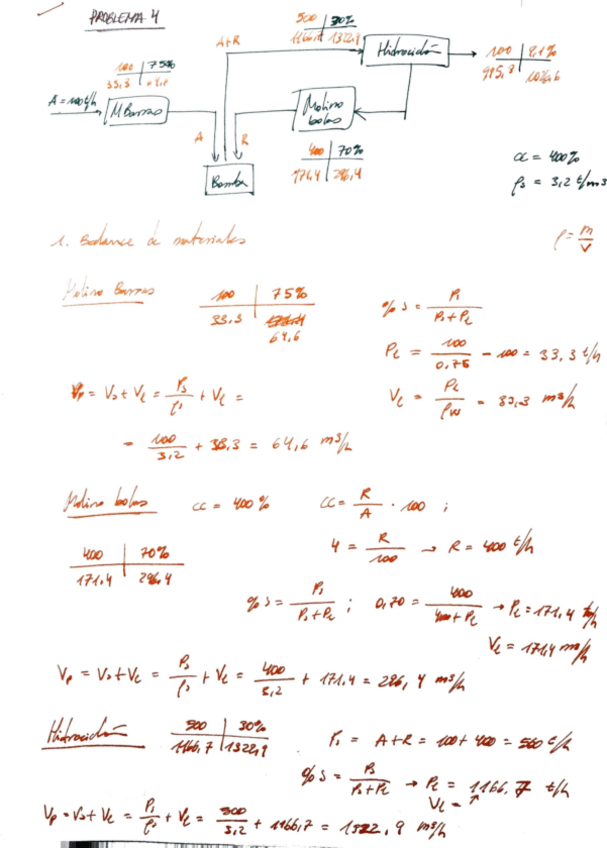 PROBLEMA 4
500 | 30%
1166,7 | 1322,9
A+R
Hidrociclón
100 | 9,1%
995,3 | 1026,6
100 | 75%
33,3
A = 100 t/h
M Barras
Molino bolas
A
R
Bomba
400 | 70%
171,4 | 296,4
cc = 400%
ρs = 3,2 t/m3
1. Balance de materiales
ρ = m/V
Molino Barras
100 | 75%
33,3
64,6
% s = Ps / (Ps + PL)
PL = 100/0,75 - 100 = 33,3 t/h
Vp = Vs + VL = Ps/ρs + VL =
VL = PL/ρw = 33,3 m3/h
= 100/3,2 + 33,3 = 64,6 m3/h
Molino bolas cc = 400 % cc = R/A · 100 ;
400 | 70%
171,4 | 296,4
4 = R/100 → R = 400 t/h
% s = Ps/(Ps + PL) ; 0,70 = 400/(400 + PL) → PL = 171,4 t/h
VL = 171,4 m3/h
Vp = Vs + VL = Ps/ρs + VL = 400/3,2 + 171,4 = 296,4 m3/h
Hidrociclón
500 | 30%
1166,7 | 1322,9
Ps = A+R = 100 + 400 = 500 t/h
% s = Ps/(Ps + PL) → PL = 1166,7 t/h
VL = ↑
Vp = Vs + VL = Ps/ρs + VL = 500/3,2 + 1166,7 = 1322,9 m3/h